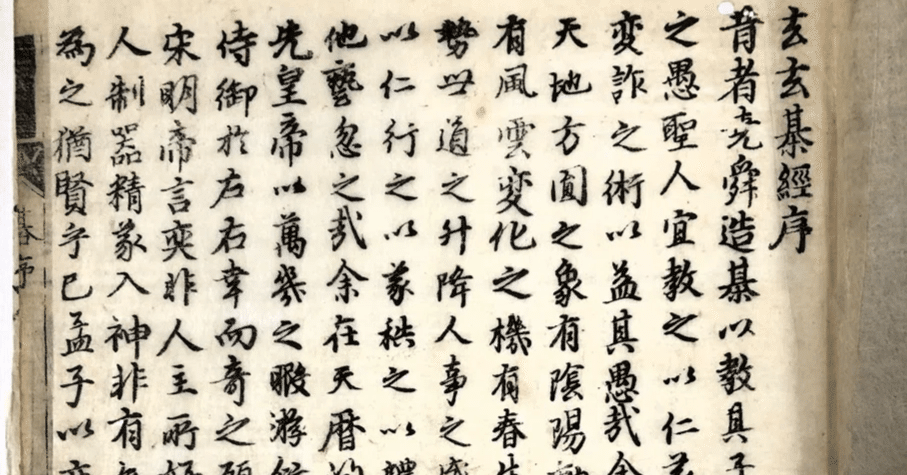 玄玄棊經序
昔者堯舜造棊以教其子
之愚聖人宜教之以仁義
變詐之術以益其愚哉余
天地方圓之象有陰陽動
有風雲變化之機有春生
勢世道之升降人事之盛
以仁行之以義秩之以禮
他藝忽之哉余在天曆
先皇帝以萬幾之暇游
侍御於左右幸而奇之
宋明帝言奕非人主所好
人制器精義入神非有
為之猶賢乎已孟子以
棊序